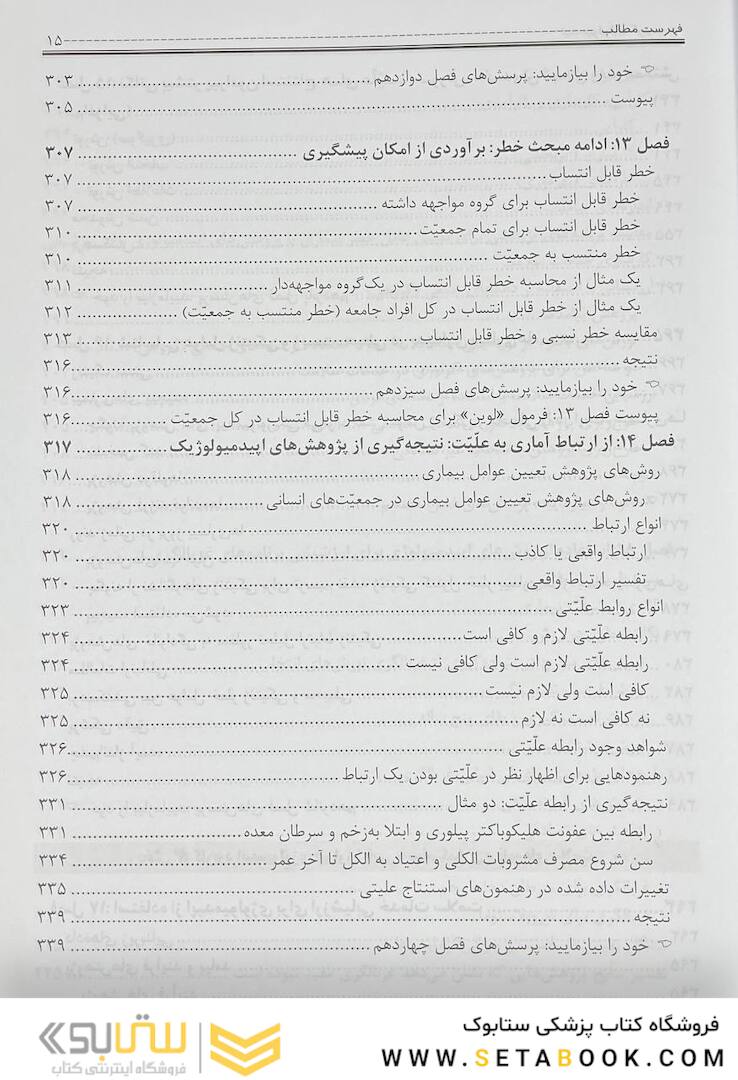 فهرست مطالب ---------- ۱۵
☜ خود را بیازمایید: پرسش‌های فصل دوازدهم ..... ۳۰۳
پیوست ..... ۳۰۵
فصل ۱۳: ادامه مبحث خطر: برآوردی از امکان پیشگیری ..... ۳۰۷
خطر قابل انتساب ..... ۳۰۷
خطر قابل انتساب برای گروه مواجهه داشته ..... ۳۰۷
خطر قابل انتساب برای تمام جمعیّت ..... ۳۱۰
خطر منتسب به جمعیّت ..... ۳۱۰
یک مثال از محاسبه خطر قابل انتساب در یک‌گروه مواجهه‌دار ..... ۳۱۱
یک مثال از خطر قابل انتساب در کل افراد جامعه (خطر منتسب به جمعیّت) ..... ۳۱۲
مقایسه خطر نسبی و خطر قابل انتساب ..... ۳۱۳
نتیجه ..... ۳۱۶
☜ خود را بیازمایید: پرسش‌های فصل سیزدهم ..... ۳۱۶
پیوست فصل ۱۳: فرمول «لوین» برای محاسبه خطر قابل انتساب در کل جمعیّت ..... ۳۱۶
فصل ۱۴: از ارتباط آماری به علّیّت: نتیجه‌گیری از پژوهش‌های اپیدمیولوژیک ..... ۳۱۷
روش‌های پژوهش تعیین عوامل بیماری ..... ۳۱۸
روش‌های پژوهش تعیین عوامل بیماری در جمعیّت‌های انسانی ..... ۳۱۸
انواع ارتباط ..... ۳۲۰
ارتباط واقعی یا کاذب ..... ۳۲۰
تفسیر ارتباط واقعی ..... ۳۲۰
انواع روابط علّیّتی ..... ۳۲۳
رابطه علّیّتی لازم و کافی است ..... ۳۲۴
رابطه علّیّتی لازم است ولی کافی نیست ..... ۳۲۴
کافی است ولی لازم نیست ..... ۳۲۵
نه کافی است نه لازم ..... ۳۲۵
شواهد وجود رابطه علّیّتی ..... ۳۲۶
رهنمودهایی برای اظهار نظر در علّیّتی بودن یک ارتباط ..... ۳۲۶
نتیجه‌گیری از رابطه علّیّت: دو مثال ..... ۳۳۱
رابطه بین عفونت هلیکوباکتر پیلوری و ابتلا به‌زخم و سرطان معده ..... ۳۳۱
سن شروع مصرف مشروبات الکلی و اعتیاد به الکل تا آخر عمر ..... ۳۳۴
تغییرات داده شده در رهنمون‌های استنتاج علیتی ..... ۳۳۵
نتیجه ..... ۳۳۹
☜ خود را بیازمایید: پرسش‌های فصل چهاردهم ..... ۳۳۹
فروشگاه کتاب پزشکی ستابوک
WWW.SETABOOK.COM
ستابوک
فروشگاه اینترنتی کتاب